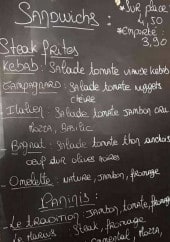 SANDWICHS :
* SUR PLACE
4,50
* EMPORTÉ :
3,90
Steak frites
Kebab : Salade tomate viande kebab
CAMPAGNARD : Salade tomate nuggets
chèvre
Italien : Salade tomate JAMBON CRU
MOZZA, BASILIC
Bagnat : Salade tomate thon anchois
oeuf dur olives noires
Omelette : NATURE, JAMBON, fromage
PANINIS :
Le TRADITION : JAMBON, tomate, fromage
Le MAXUS Steak, fromage
MOZZA,